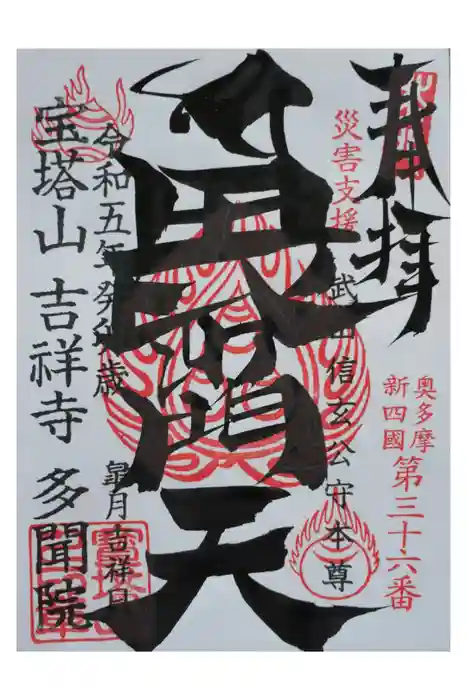 奉拝
災害支援
武田信玄公守本尊
奥多摩
新四國
第三十六番
毘沙門天
令和五年癸卯歳
皐月吉祥日
宝塔山 吉祥寺 多聞院